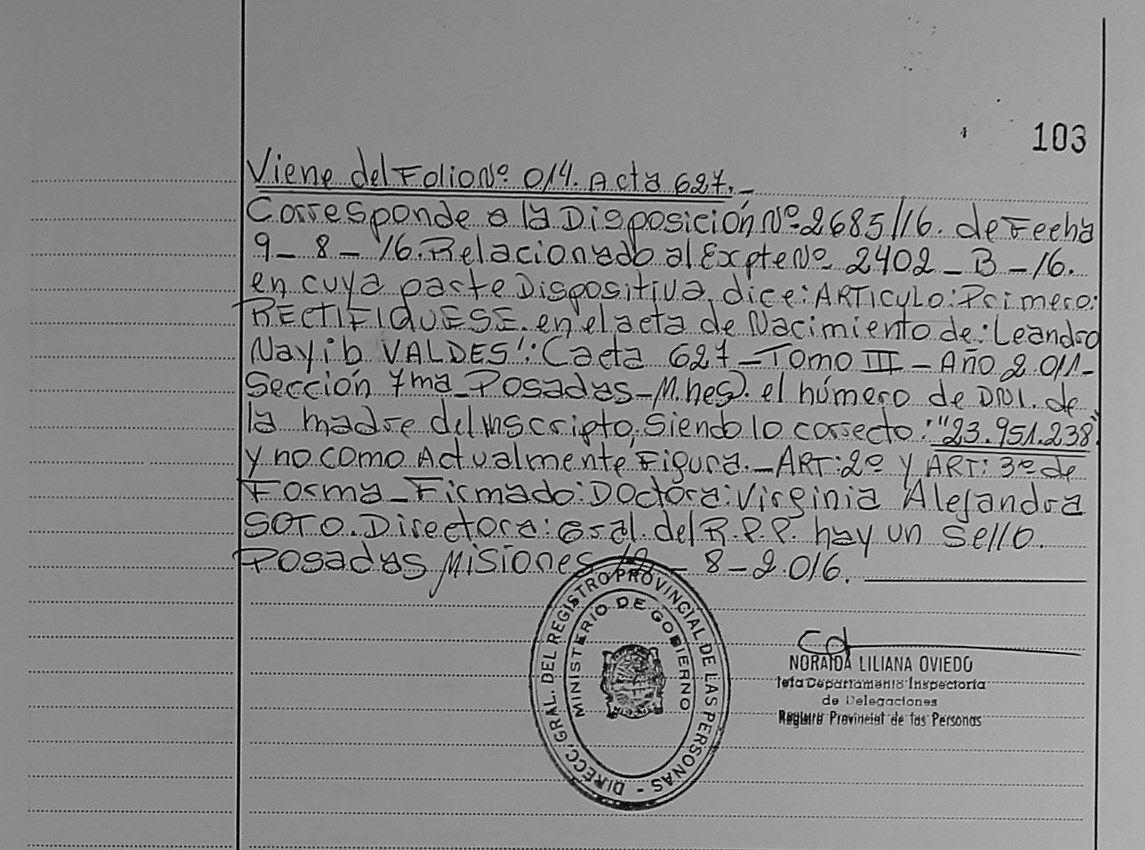 103
Viene del Folio Nº 014. Acta 627.-
Corresponde a la Disposición Nº 2685/16. de Fecha
9_ 8 - 16. Relacionado al Expte Nº 2402 - B - 16.
en cuya parte Dispositiva, dice: ARTICULO: Primero:
RECTIFIQUESE. en el acta de Nacimiento de: Leandro
Nayib VALDES": Cacta 627 - Tomo III - Año 2.011-
Sección 7ma_ Posadas - M.nes). el número de DNI. de
la madre del inscripto, siendo lo correcto: "23.951.238"
y no como Actualmente Figura._ ART: 2º y ART: 3º de
Forma _ Firmado: Doctora: Virginia Alejandra
SOTO. Directora: Gral. del R.P.P. hay un sello.
Posadas Misiones - 8 - 2.016.
DIRECC. GRAL. DEL REGISTRO PROVINCIAL DE LAS PERSONAS -
MINISTERIO DE GOBIERNO
NORAIDA LILIANA OVIEDO
Jefa Departamento Inspectoria
de Delegaciones
Registro Provincial de las Personas